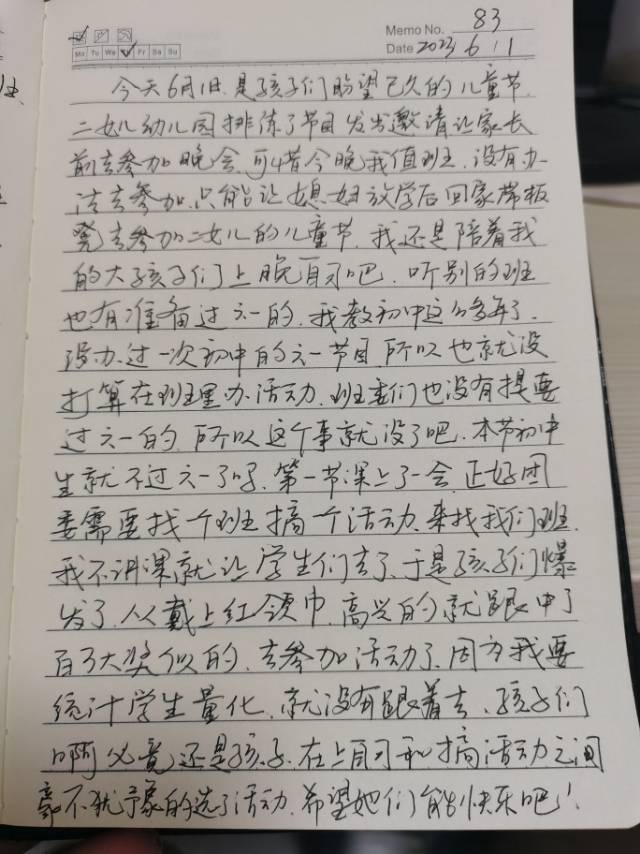 Memo No. 83
Mo Tu We Fr Sa Su
Date 2023 6 1
今天6月1日,是孩子们盼望已久的儿童节,
二女儿幼儿园排练了节目发出邀请让家长
前去参加晚会,可惜今晚我值班,没有办
法去参加,只能让媳妇放学后回家带板
凳去参加二女儿的儿童节,我还是陪着我
的大孩子们上晚自习吧,听别的班
也有准备过六一的,我教初中这么多年了,
没办过一次初中的六一节目,所以也就没
打算在班里办活动,班委们也没有提要
过六一的,所以这个事就没了吧,本节初中
生就不过六一了吗,第一节课上了一会,正好团
委需要找个班搞个活动,来找我们班,
我不讲课就让学生们去了,于是孩子们爆
发了,人人戴上红领巾,高兴的就跟中了
百万大奖似的,去参加活动了,因为我要
统计学生量化,就没有跟着去,孩子们
啊必竟还是孩子,在上自习和搞活动之间
毫不犹予的选了活动,希望她们能快乐吧!